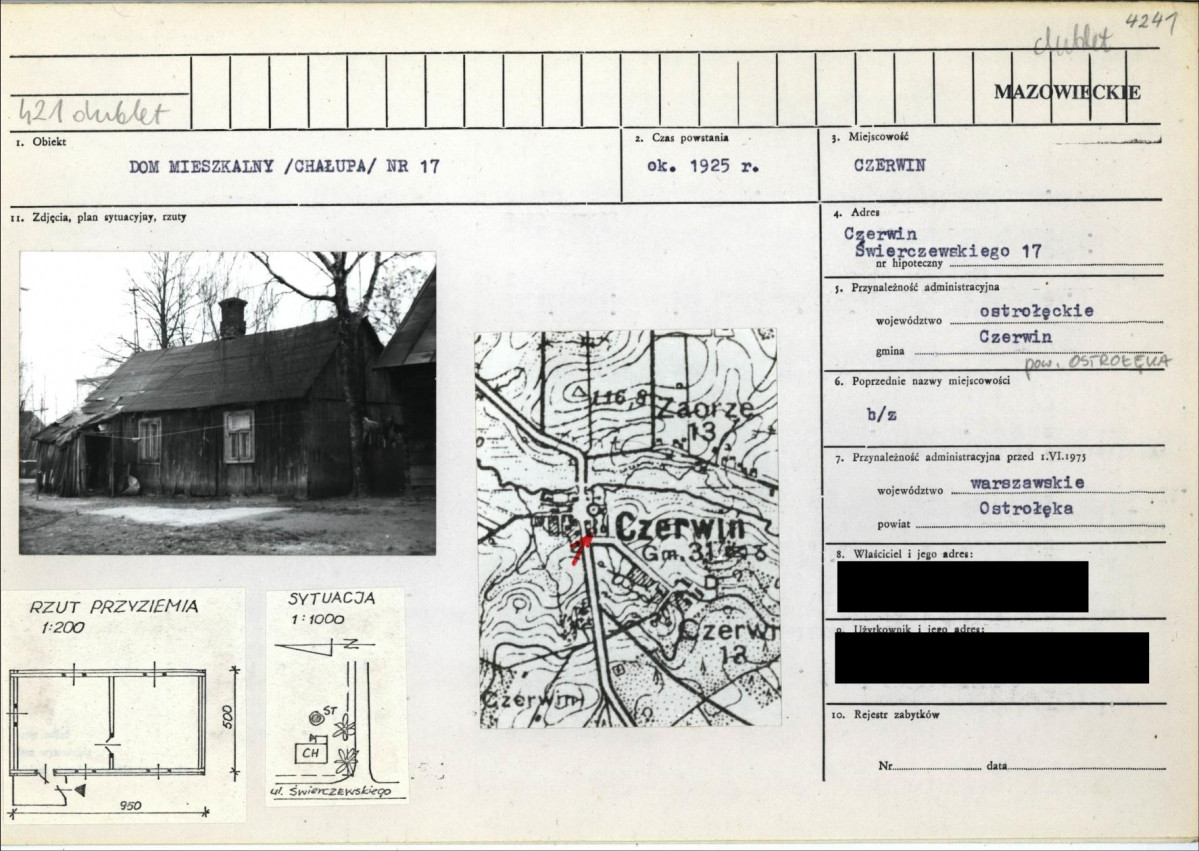 4241
dublet
MAZOWIECKIE
421 dublet
1. Obiekt
DOM MIESZKALNY /CHAŁUPA/ NR 17
2. Czas powstania
ok. 1925 r.
3. Miejscowość
CZERWIN
11. Zdjęcia, plan sytuacyjny, rzuty
4. Adres
Czerwin
Świerczewskiego 17
nr hipoteczny
5. Przynależność administracyjna
województwo ostrołęckie
gmina Czerwin
pow. OSTROŁĘKA
6. Poprzednie nazwy miejscowości
b/z
7. Przynależność administracyjna przed 1.VI.1975
województwo warszawskie
powiat Ostrołęka
8. Właściciel i jego adres:
9. Użytkownik i jego adres:
10. Rejestr zabytków
Nr data
116,8
Zaorze
13
Czerwin
Gm. 31
Czerwi
13
Czerwin
RZUT PRZYZIEMIA
1:200
500
950
SYTUACJA
1:1000
N
ST
CH
ul. Świerczewskiego